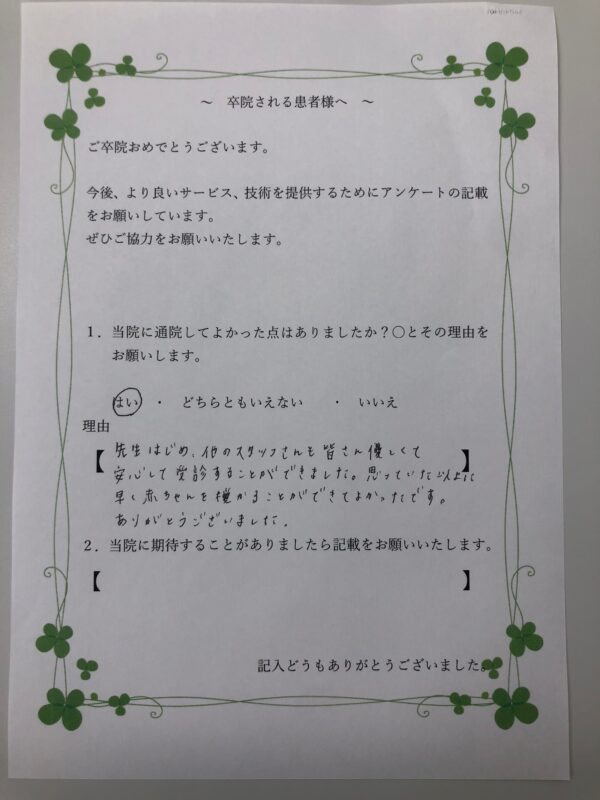 ～ 卒院される患者様へ ～
ご卒院おめでとうございます。
今後、より良いサービス、技術を提供するためにアンケートの記載
をお願いしています。
ぜひご協力をお願いいたします。
１．当院に通院してよかった点はありましたか？〇とその理由を
お願いします。
はい ・ どちらともいえない ・ いいえ
理由
【先生はじめ、他のスタッフさんも皆さん優しくて
安心して受診することができました。思っていた以上に】
早く赤ちゃんを授かることができてよかったです。
ありがとうございました。
２．当院に期待することがありましたら記載をお願いいたします。
【 】
記入どうもありがとうございました。